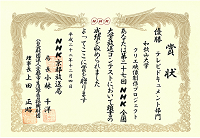 賞状
優勝 テレビドキュメント部門
和歌山大学
クリエ映像制作プロジェクト
あなたは第二十七回NHK全国
大学放送コンテストにおいて頭書の
成績を収められました
よってこれを賞します
平成二十二年
NHK京都放送局
局長 小林千洋
理事長 上田正昭